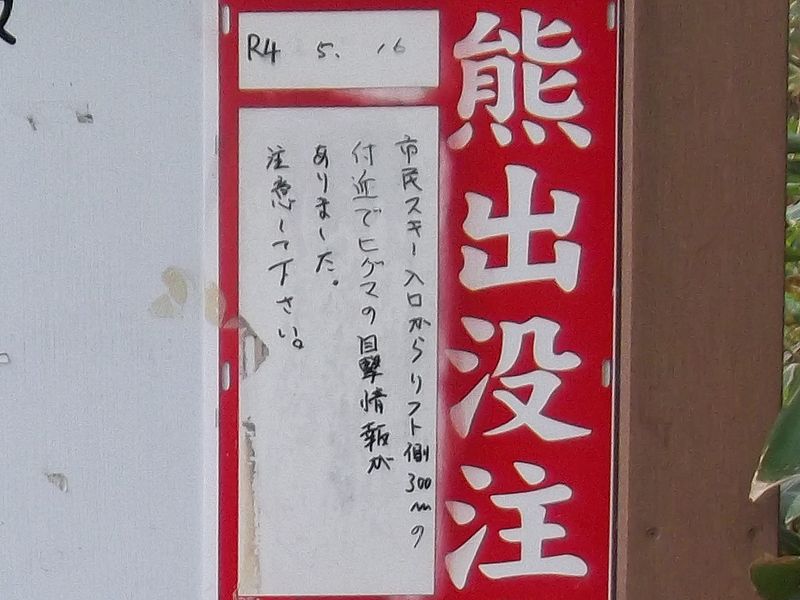 熊出没注
R4 5. 16
市民スキー入口からリフト側300mの
付近でヒグマの目撃情報が
ありました。
注意して下さい。